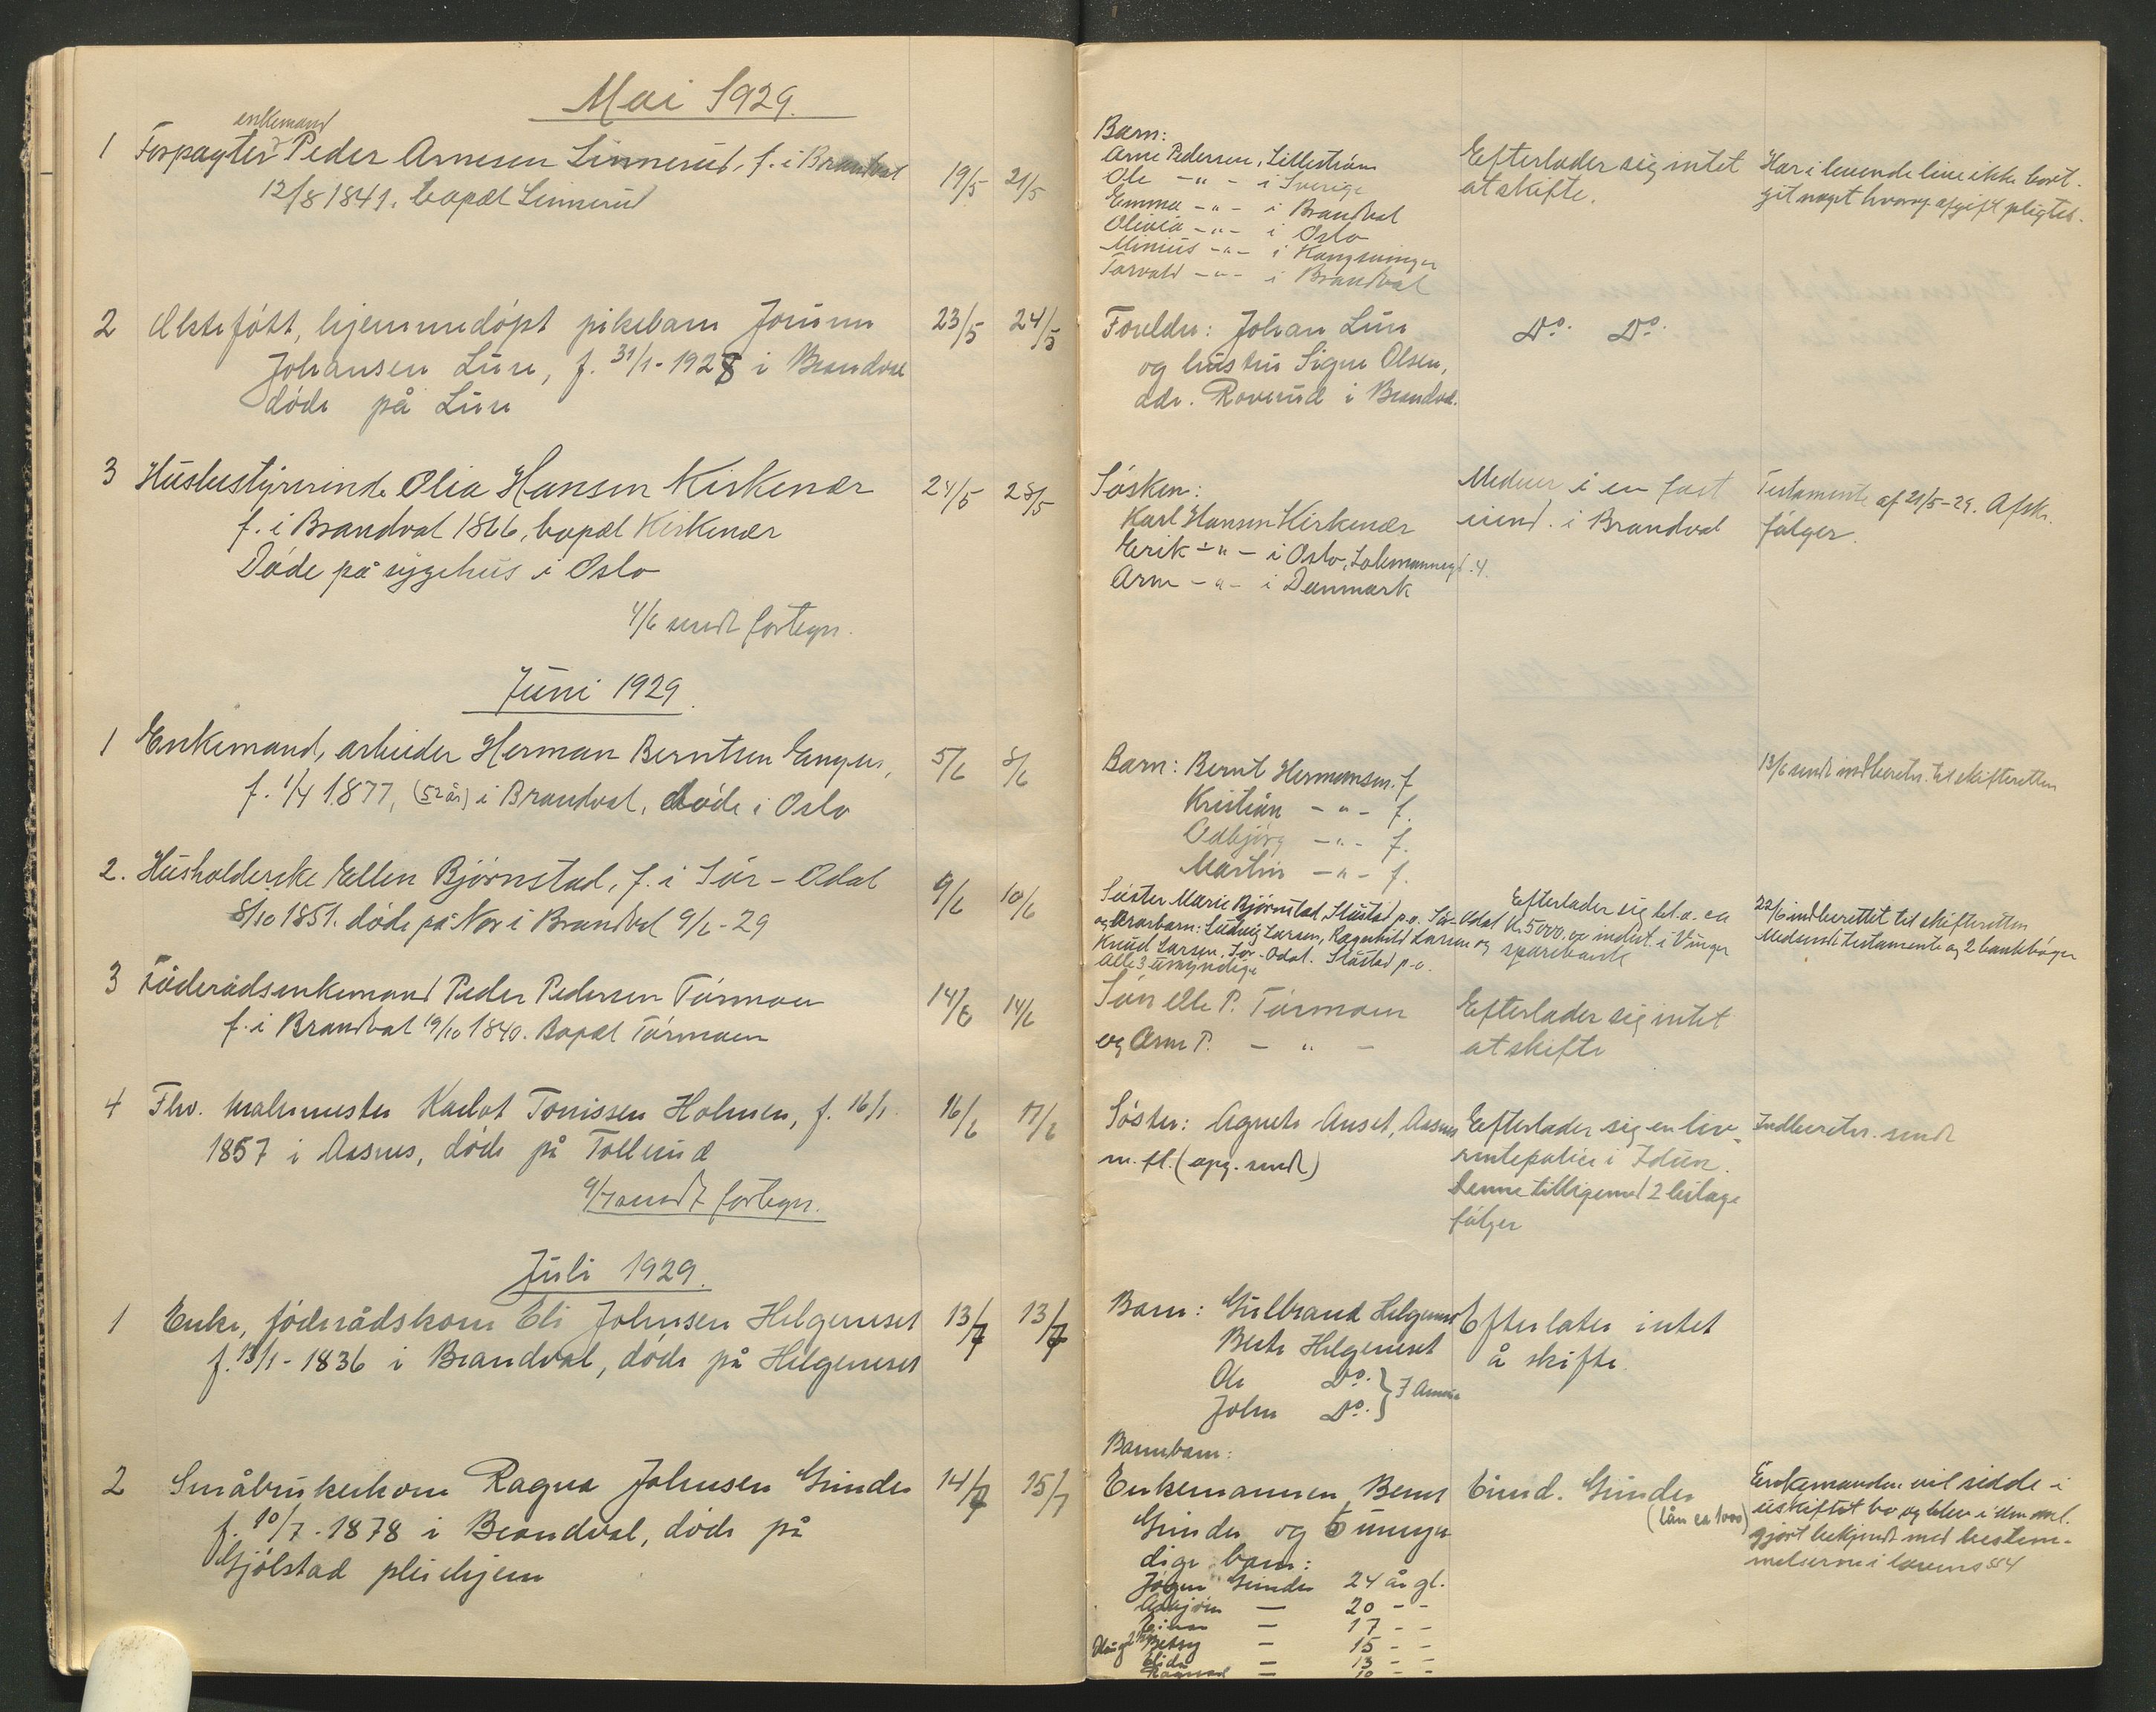 Mai 1929.
enkemand
1 Forpagter Peder Arnesen Linnerud, f. i Brandval 19/5 21/5
12/8 1841. bopæl Linnerud
2 Ektefött, hjemmedöpt pikebarn Jorunn 23/5 24/5
Johansen Lure, f. 31/1-1928 i Brandval
döde på Lure
3 Husbestyrerinde Olia Hansen Kirkenær 24/5 28/5
f. i Brandval 1866, bopæl Kirkenær
Döde på sygehus i Oslo
4/6 sendt fortegn.
Juni 1929
1 Enkemand, arbeider Herman Berntsen Enger, 5/6 8/6
f. 1/4 1877, (52 år) i Brandval, döde i Oslo
2. Husholderske Ellen Björnstad, f. i Sör-Odal 9/6 10/6
8/10 1851. döde på Nor i Brandval 9/6-29
3 Föderådsenkemand Peder Pedersen Törmoen 14/6 14/6
f. i Brandval 19/10 1840. Bopæl Törmoen
4 Fhv. malermester Karlot Tonissen Holmen, f. 16/1 16/6 17/6
1857 i Aasnes, döde på Tollerud
9/7 sendt fortegn.
Juli 1929.
1 Enke, föderådskone Eli Johnsen Helgeneset 13/7 13/7
f. 13/1-1836 i Brandval, döde på Helgeneset
2 Småbrukerkone Ragna Johnsen Grinder 14/7 15/7
f. 10/7-1878 i Brandval, döde på
Gjölstad pleiehjem
Barn:
Arne Pedersen, Lilleström
Ole -"- i Sverige
Emma -"- i Brandval
Olivia -"- i Oslo
Minius -"- i Kongsvinger
Torvald -"- i Brandval
Efterlader sig intet
at skifte.
Har i levende live ikke bort-
git noget hvorav afgift pligtes.
Foreldre: Johan Lure
og hustru Signe Olsen,
adr. Roverud i Brandval.
Do. Do.
Sösken:
Karl Hansen Kirkenær
Erik -"- i Oslo, Lakemannsgt. 4.
Arne -"- i Danmark
Medeier i en fast
eiend. i Brandval
Testamente af 21/5-29. Afskr.
fölger.
Barn: Bernt Hermansen f.
Kristian -"- f.
Odbjörg -"- f.
Martin -"- f.
13/6 sendt indberetn. til skifteretten
Söster Marie Björnstad, Slåstad p.o. Sör-Odal
og Brorbarn: Ludvig Larsen, Ragnhild Larsen og
Knud Larsen, Sör-Odal. Slåstad p.o.
Alle 3 umyndige
Efterlader sig bl.a. ca
kr. 5000.00 indest. i Vinger
sparebank
22/6 indberettet til skifteretten
Medsendt testamente og 2 bankböger
Sön Elle P. Törmoen
og Arne P. - " -
Efterlader sig intet
at skifte
Söster: Agnete Anset, Aasnes
m. fl. (opg. sendt)
Efterlader sig en liv-
rentepolice i Idun.
Denne tilligemed 2 bilage
fölger
Indberetn. sendt
Barn: Gulbrand Helgeneset
Berte Helgeneset
Ole Do.
John Do. } I Amerika
Efterlater intet
å skifte.
Barnebarn:
Enkemannen Bernt
Grinder og 6 umyn
dige barn:
Jörgen Grinder 24 år gl.
Asbjörn — 20 - -
— 17 - -
Betsy — 15 - -
— 13 - -
Ragnar — 10 - -
Eiend. Grinder
(lån ca 1000)
Enkemanden vil sidde i
uskiftet bo og blev i den anl.
gjort bekjendt med bestem-
melserne i lovens § 4